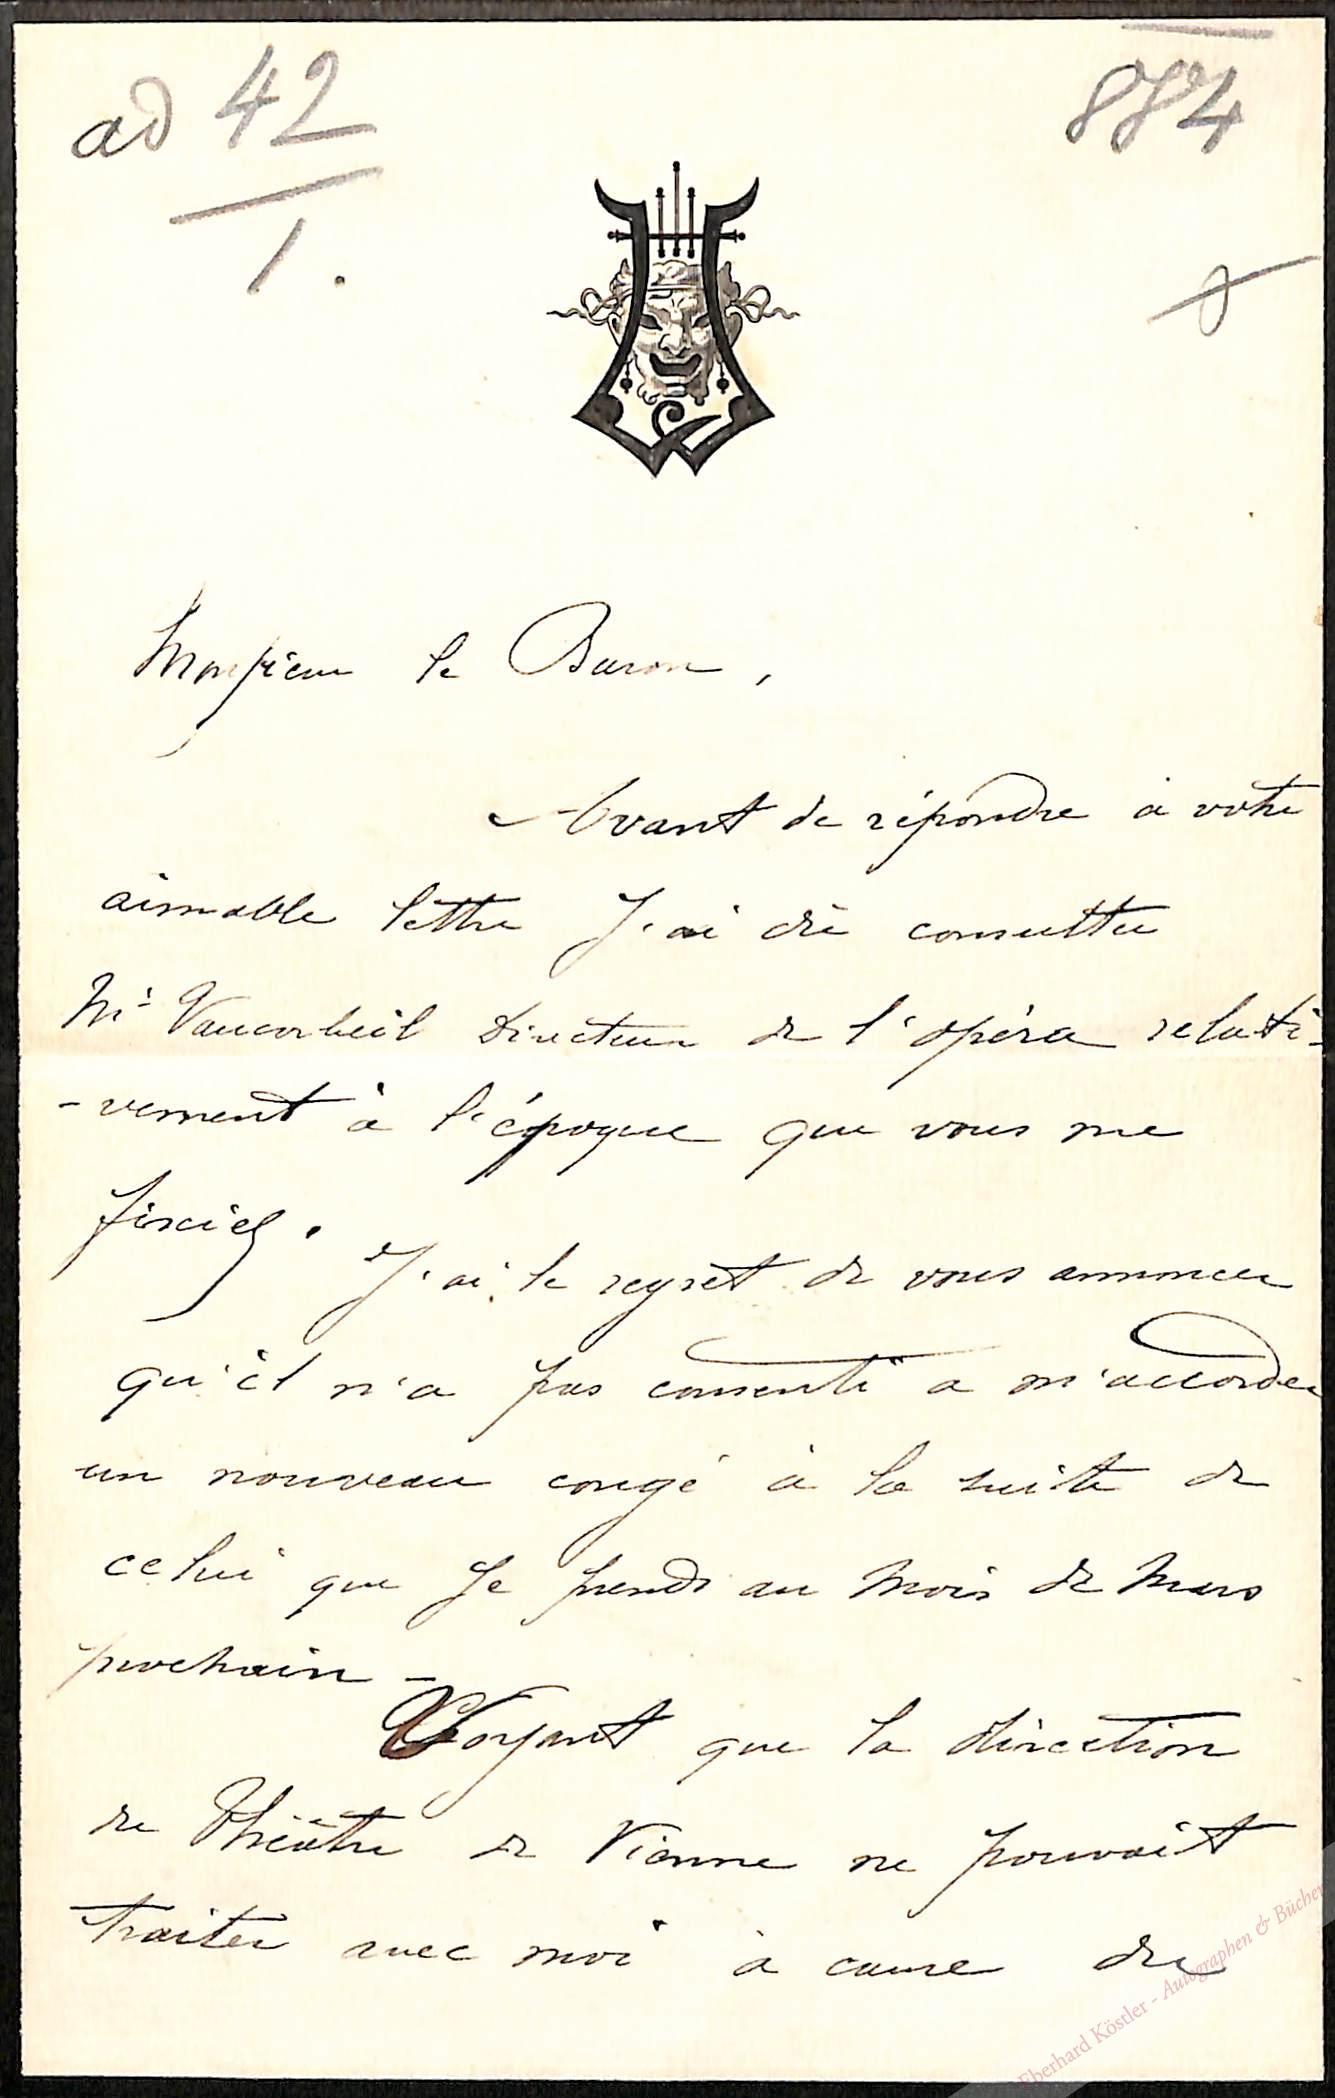 ad 42
1.
884
Monsieur le Baron,
Avant de répondre à votre
aimable lettre J'ai dû consulter
Mr Vaucorbeil Directeur de l'opéra relati-
-vement à l'époque que vous me
fixiez.
J'ai le regret de vous annoncer
qu'il n'a pas consenti a m'accorder
un nouveau congé à la suite de
celui que Je prends au Mois de Mars
prochain -
Voyant que la direction
du Théâtre de Vienne ne pouvait
traiter avec moi à cause du
Eberhard Köstler - Autographen & Bücher